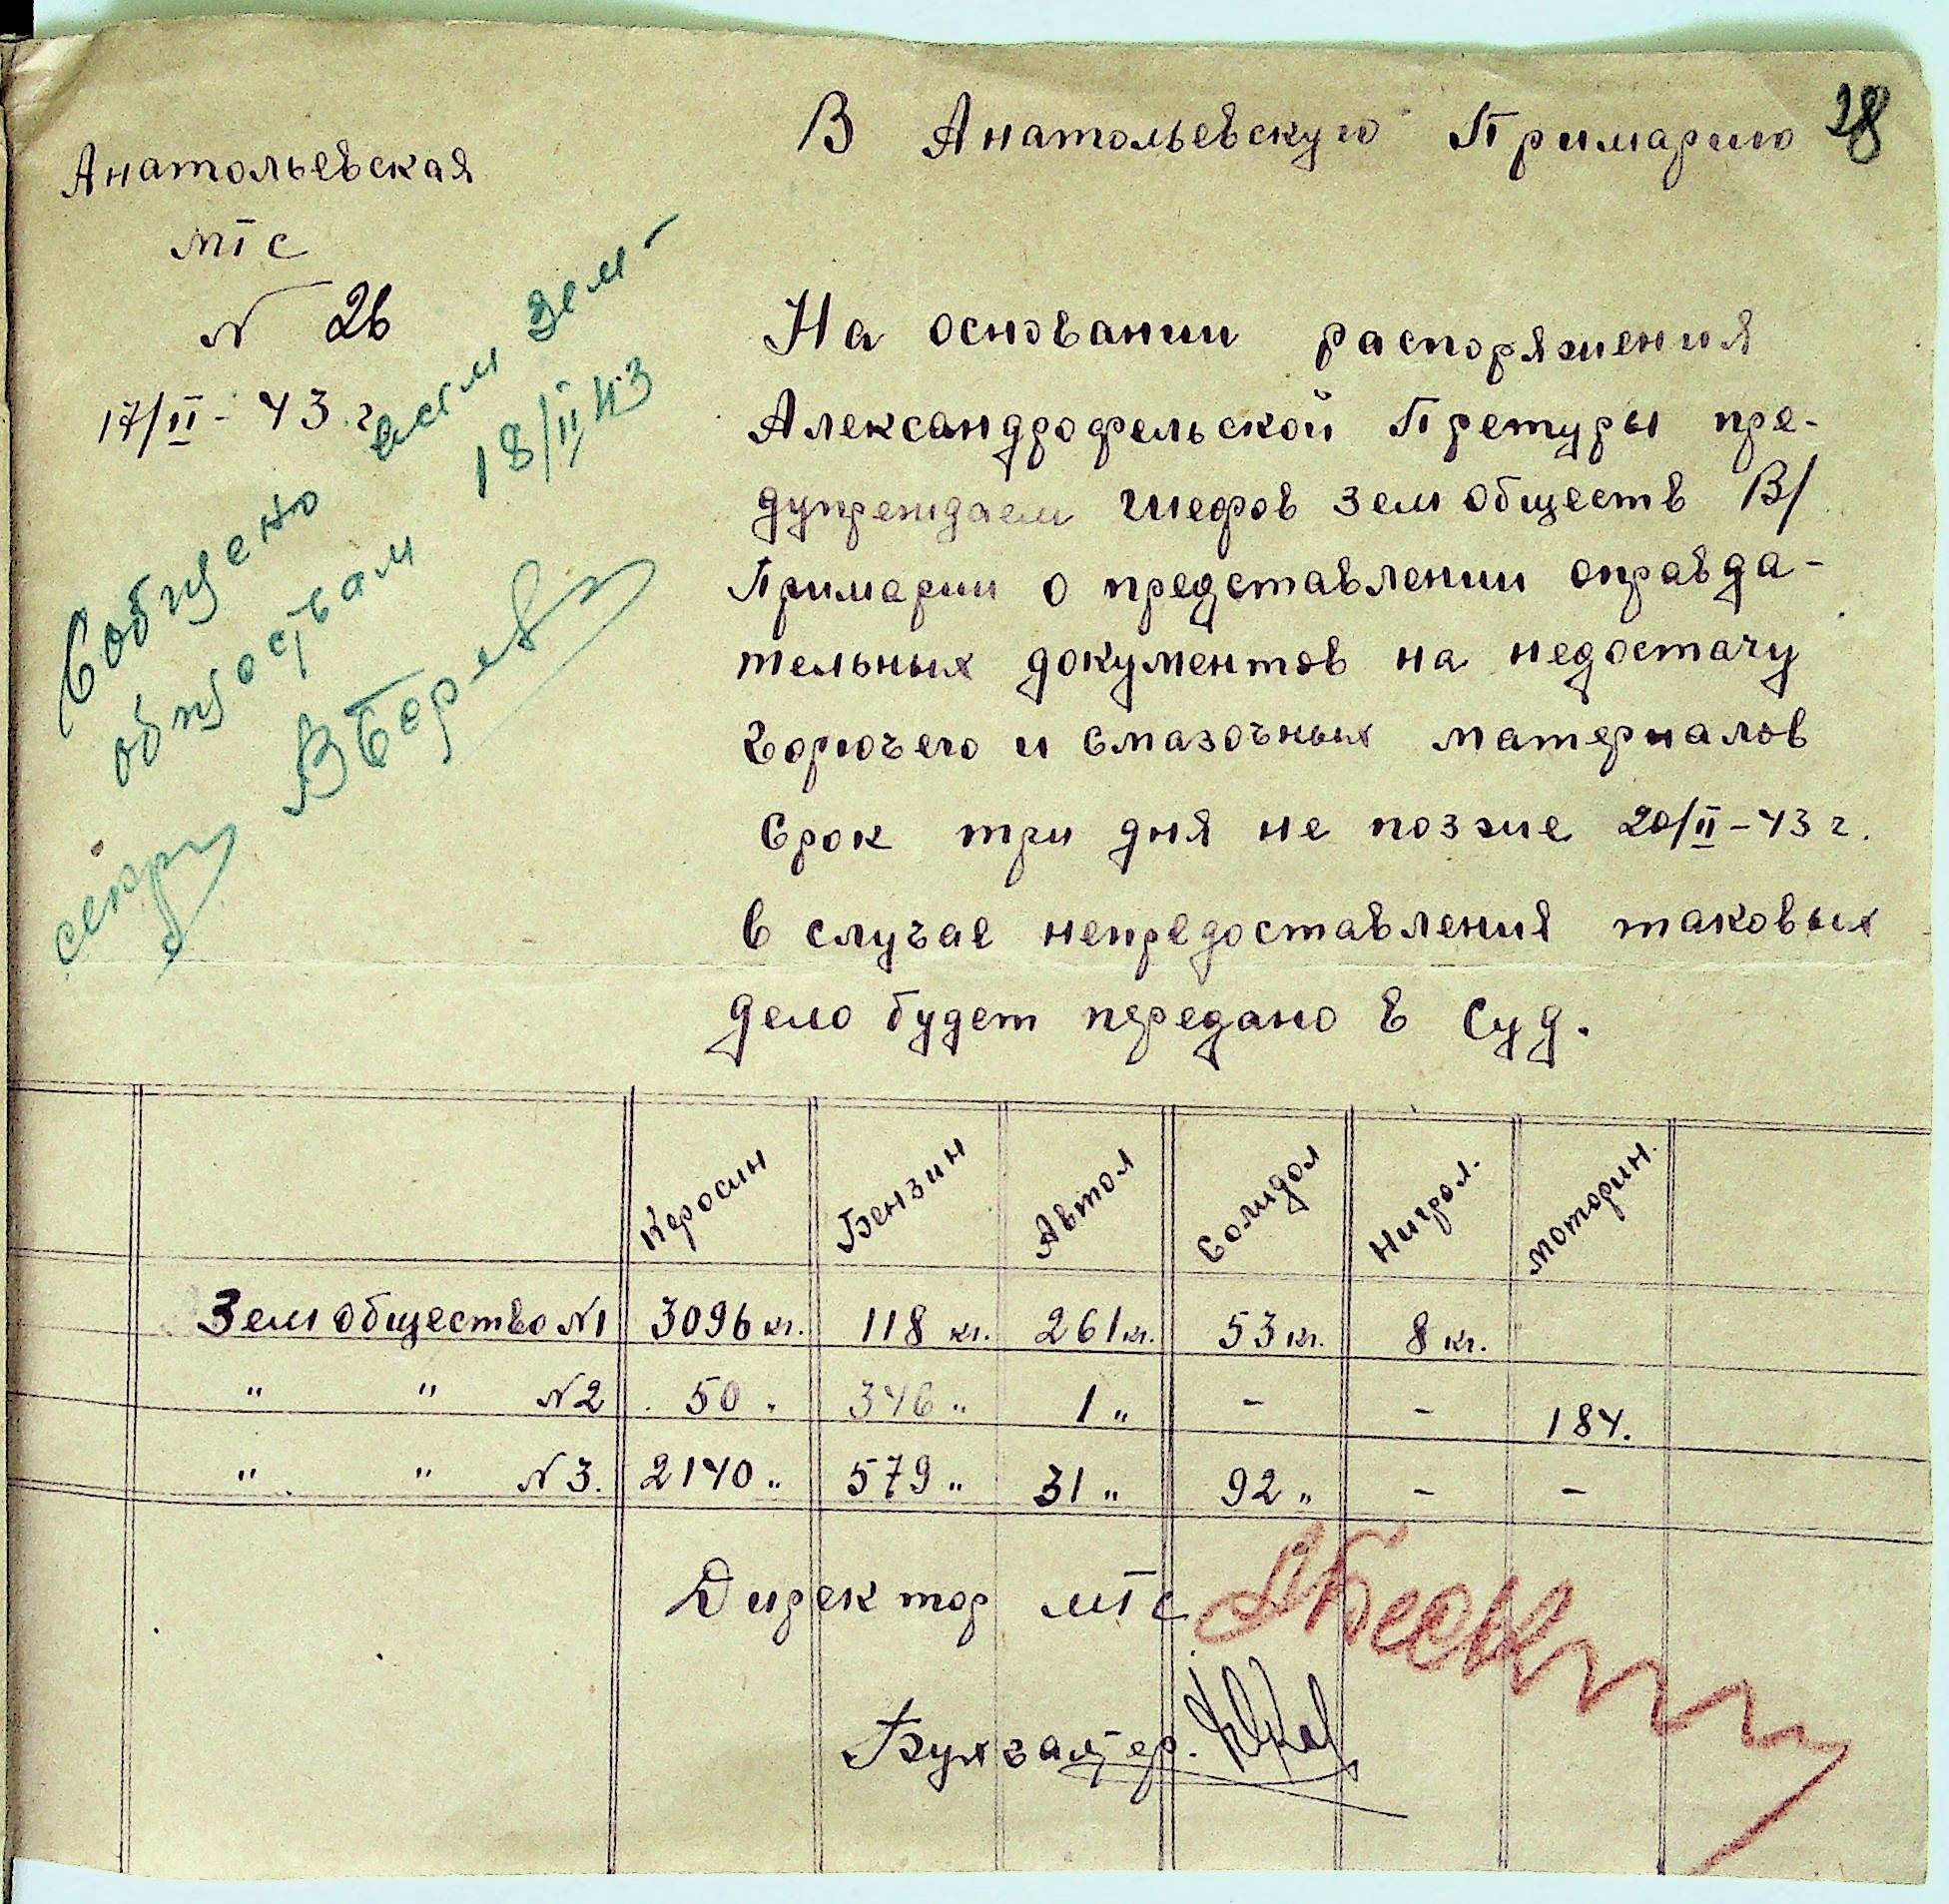 28
В Анатольевскую Примарию
Анатольевская
МТС
N 26
17/II - 43 г
Сообщено всем зем-
обществам 18/II 43
секр
На основании распоряжения
Александрофельской Претуры пре-
дупреждаем шефов земобществ В/
Примарии о представлении оправда-
тельных документов на недостачу
горючего и смазочных материалов
Срок три дня не позже 20/II-43 г.
в случае непредоставления таковых
дело будет передано в Суд.
Керосин Бензин Автол Солидол Нигрол. Моторин.
Земобщество N1 3096 кг. 118 кг. 261 кг. 53 кг. 8 кг.
" " N2 50 " 346 " 1 " - - 184.
" " N3. 2140 " 579 " 31 " 92 " - -
Директор МТС
Бухгалтер.